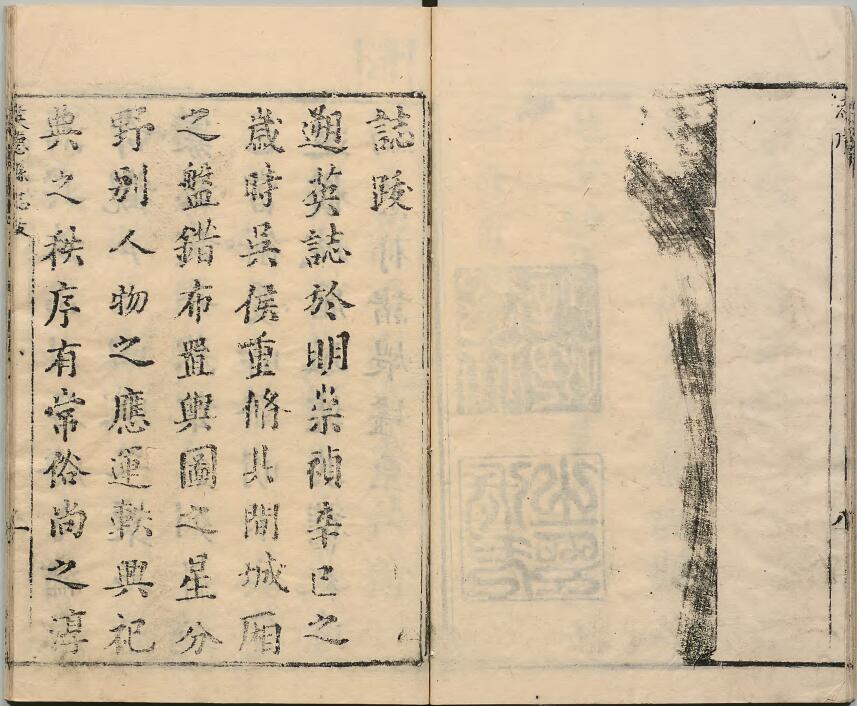 誌跋
遡英誌於明崇禎辛巳之
歲時吳侯重脩其間城厢
之盤錯布置輿圖之星分
野別人物之應運軼興祀
典之秩序有常俗尚之淳
英德縣志跋